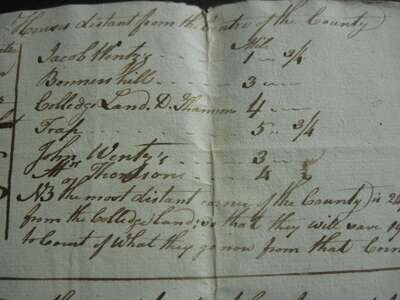 Houses distant from the Centre of the County
Mile
Jacob Wentz's - - - - 1 - 3/4
Bonners hill - - - 3 - -
Colledge Land, D. Thomson 4 - -
Trap - - - - 5 .. 3/4
John Wentz's - - - 3 - -
At Thomsons - - - 4 1/2
NB the most distant corner of the County is 24
from the Colledge Land; so that they will save
to Court of What they go now from that